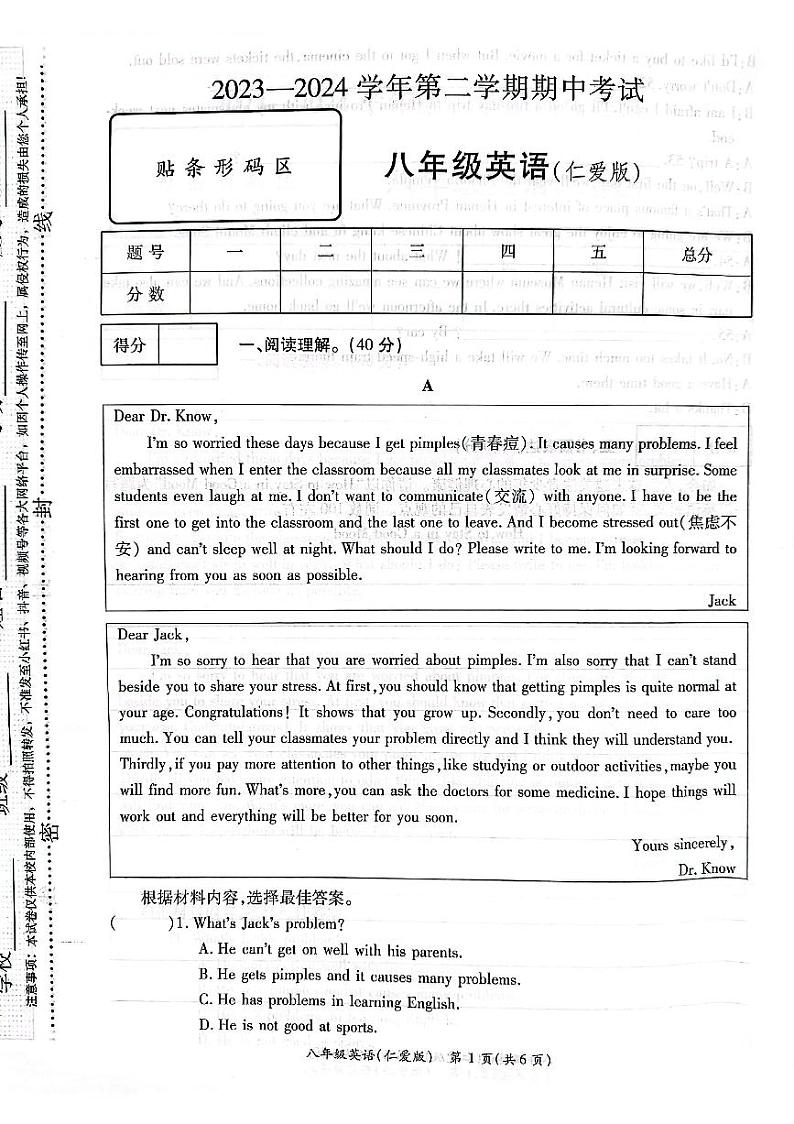 2023—2024 学年第二学期期中考试
贴 条 形 码 区
八年级英语(仁爱版)
题 号 一 二 三 四 五 总分
分 数
得分
一、阅读理解。(40 分)
A
Dear Dr. Know,
I'm so worried these days because I get pimples(青春痘). It causes many problems. I feel
embarrassed when I enter the classroom because all my classmates look at me in surprise. Some
students even laugh at me. I don't want to communicate(交流) with anyone. I have to be the
first one to get into the classroom and the last one to leave. And I become stressed out(焦虑不
安) and can't sleep well at night. What should I do? Please write to me. I'm looking forward to
hearing from you as soon as possible.
Jack
Dear Jack,
I'm so sorry to hear that you are worried about pimples. I'm also sorry that I can't stand
beside you to share your stress. At first,you should know that getting pimples is quite normal at
your age. Congratulations! It shows that you grow up. Secondly, you don't need to care too
much. You can tell your classmates your problem directly and I think they will understand you.
Thirdly,if you pay more attention to other things,like studying or outdoor activities,maybe you
will find more fun. What's more,you can ask the doctors for some medicine. I hope things will
work out and everything will be better for you soon.
Yours sincerely,
Dr. Know
根据材料内容,选择最佳答案。
( )1. What's Jack's problem?
A. He can't get on well with his parents.
B. He gets pimples and it causes many problems.
C. He has problems in learning English.
D. He is not good at sports.
八年级英语(仁爱版) 第 1 页(共 6 页)
注意事项：本试卷仅供本校内部使用，不得拍照转发，不准发至小红书、抖音、视频号等各大网络平台，如因个人操作传至网上，属侵权行为，造成的损失由您个人承担!
密 封 线
学校
班级